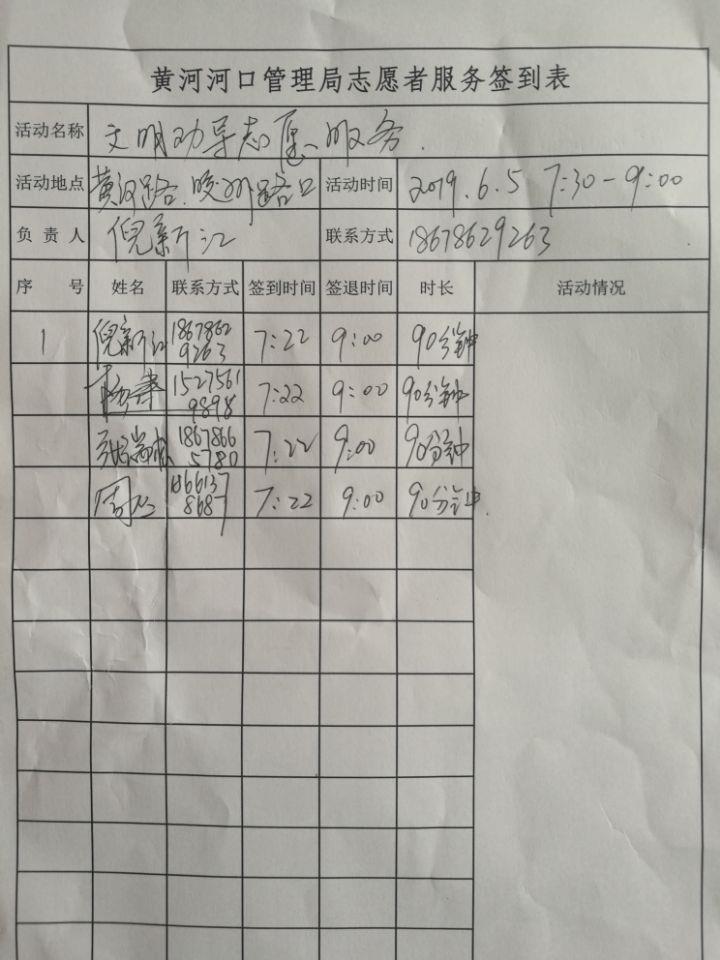 黄河河口管理局志愿者服务签到表
活动名称 文明劝导志愿服务.
活动地点 黄河路.胶州路路口 活动时间 2019.6.5 7:30-9:00
负责人 倪新江 联系方式 18678629263
序号 姓名 联系方式 签到时间 签退时间 时长 活动情况
1 倪新江 18678629263 7:22 9:00 90分钟
15275619898 7:22 9:00 90分钟
18678665780 7:22 9:00 90分钟
7:22 9:00 90分钟.